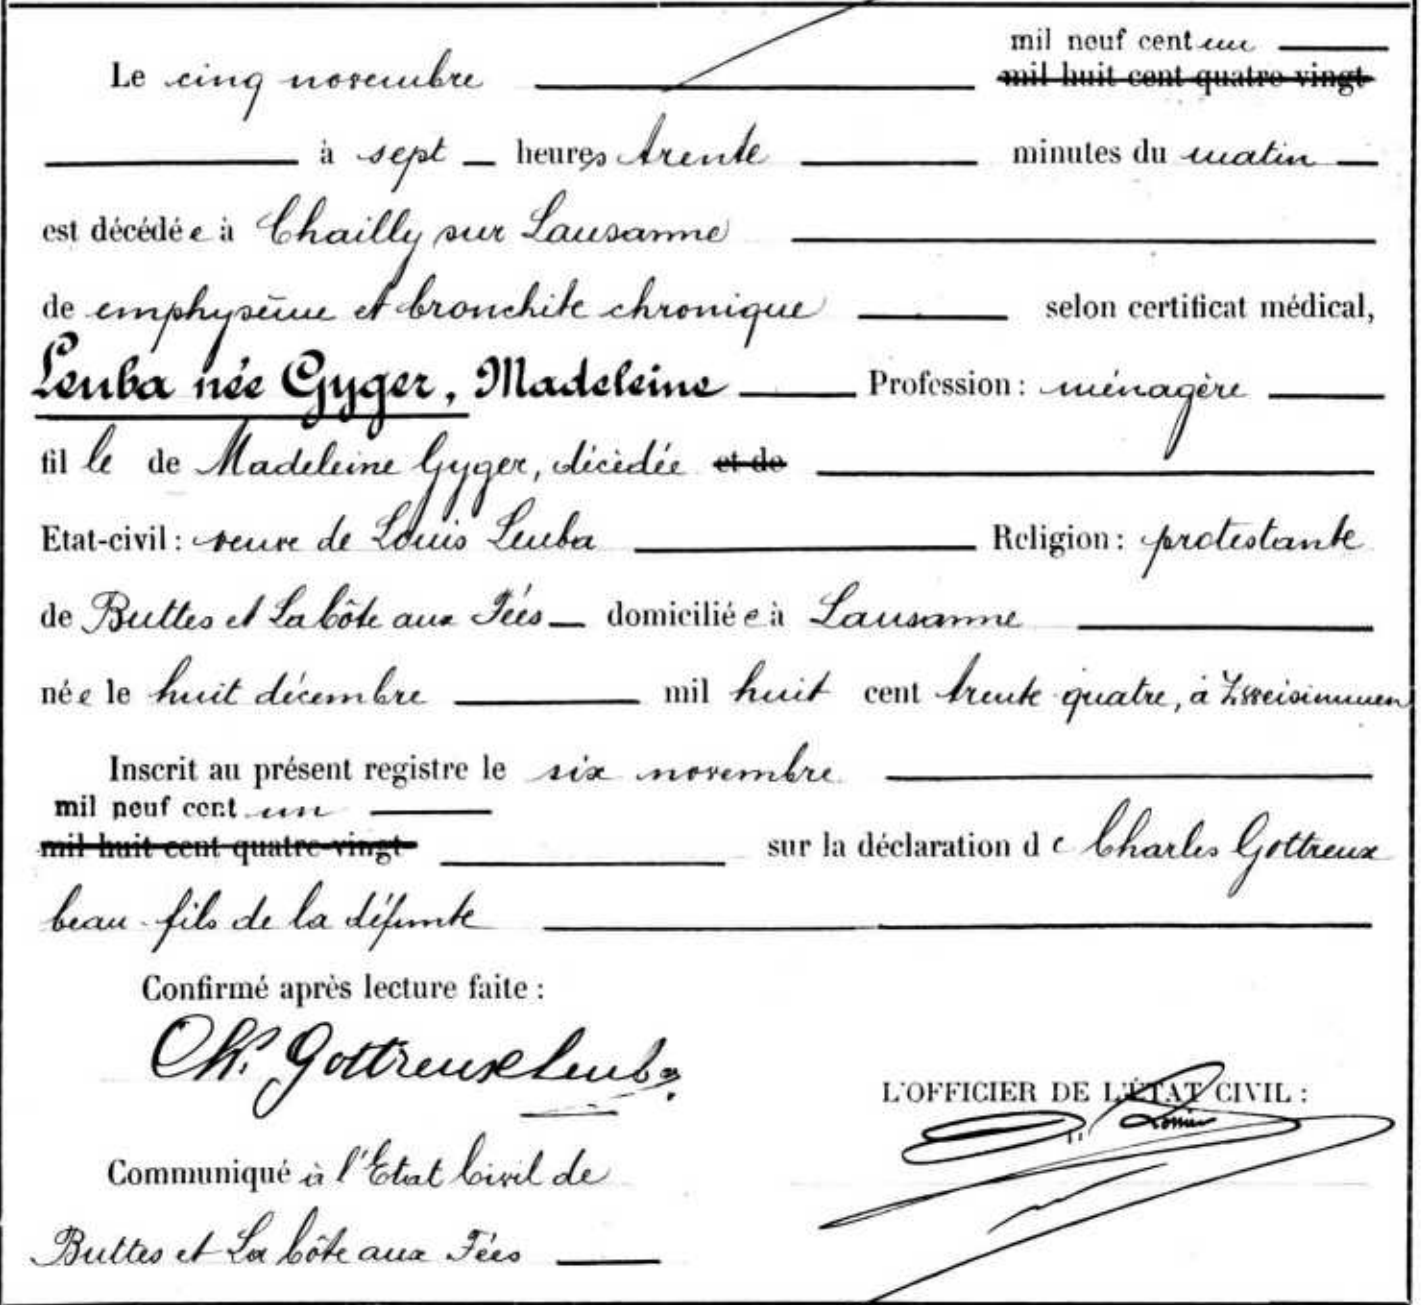 mil neuf cent un
Le cinq novembre mil huit cent quatre-vingt
à sept heures trente minutes du matin
est décédée à Chailly sur Lausanne
de emphysème et bronchite chronique selon certificat médical,
Leuba née Gyger, Madeleine Profession : ménagère
fille de Madeleine Gyger, décédée et de
Etat-civil : veuve de Louis Leuba Religion : protestante
de Buttes et La Côte aux Fées domiciliée à Lausanne
née le huit décembre mil huit cent trente quatre, à Zweisimmen
Inscrit au présent registre le six novembre
mil neuf cent un
mil huit cent quatre-vingt sur la déclaration de Charles Gottreux
beau-fils de la défunte
Confirmé après lecture faite :
Ch. Gottreux Leuba
L'OFFICIER DE L'ÉTAT CIVIL :
Communiqué à l'Etat Civil de
Buttes et La Côte aux Fées